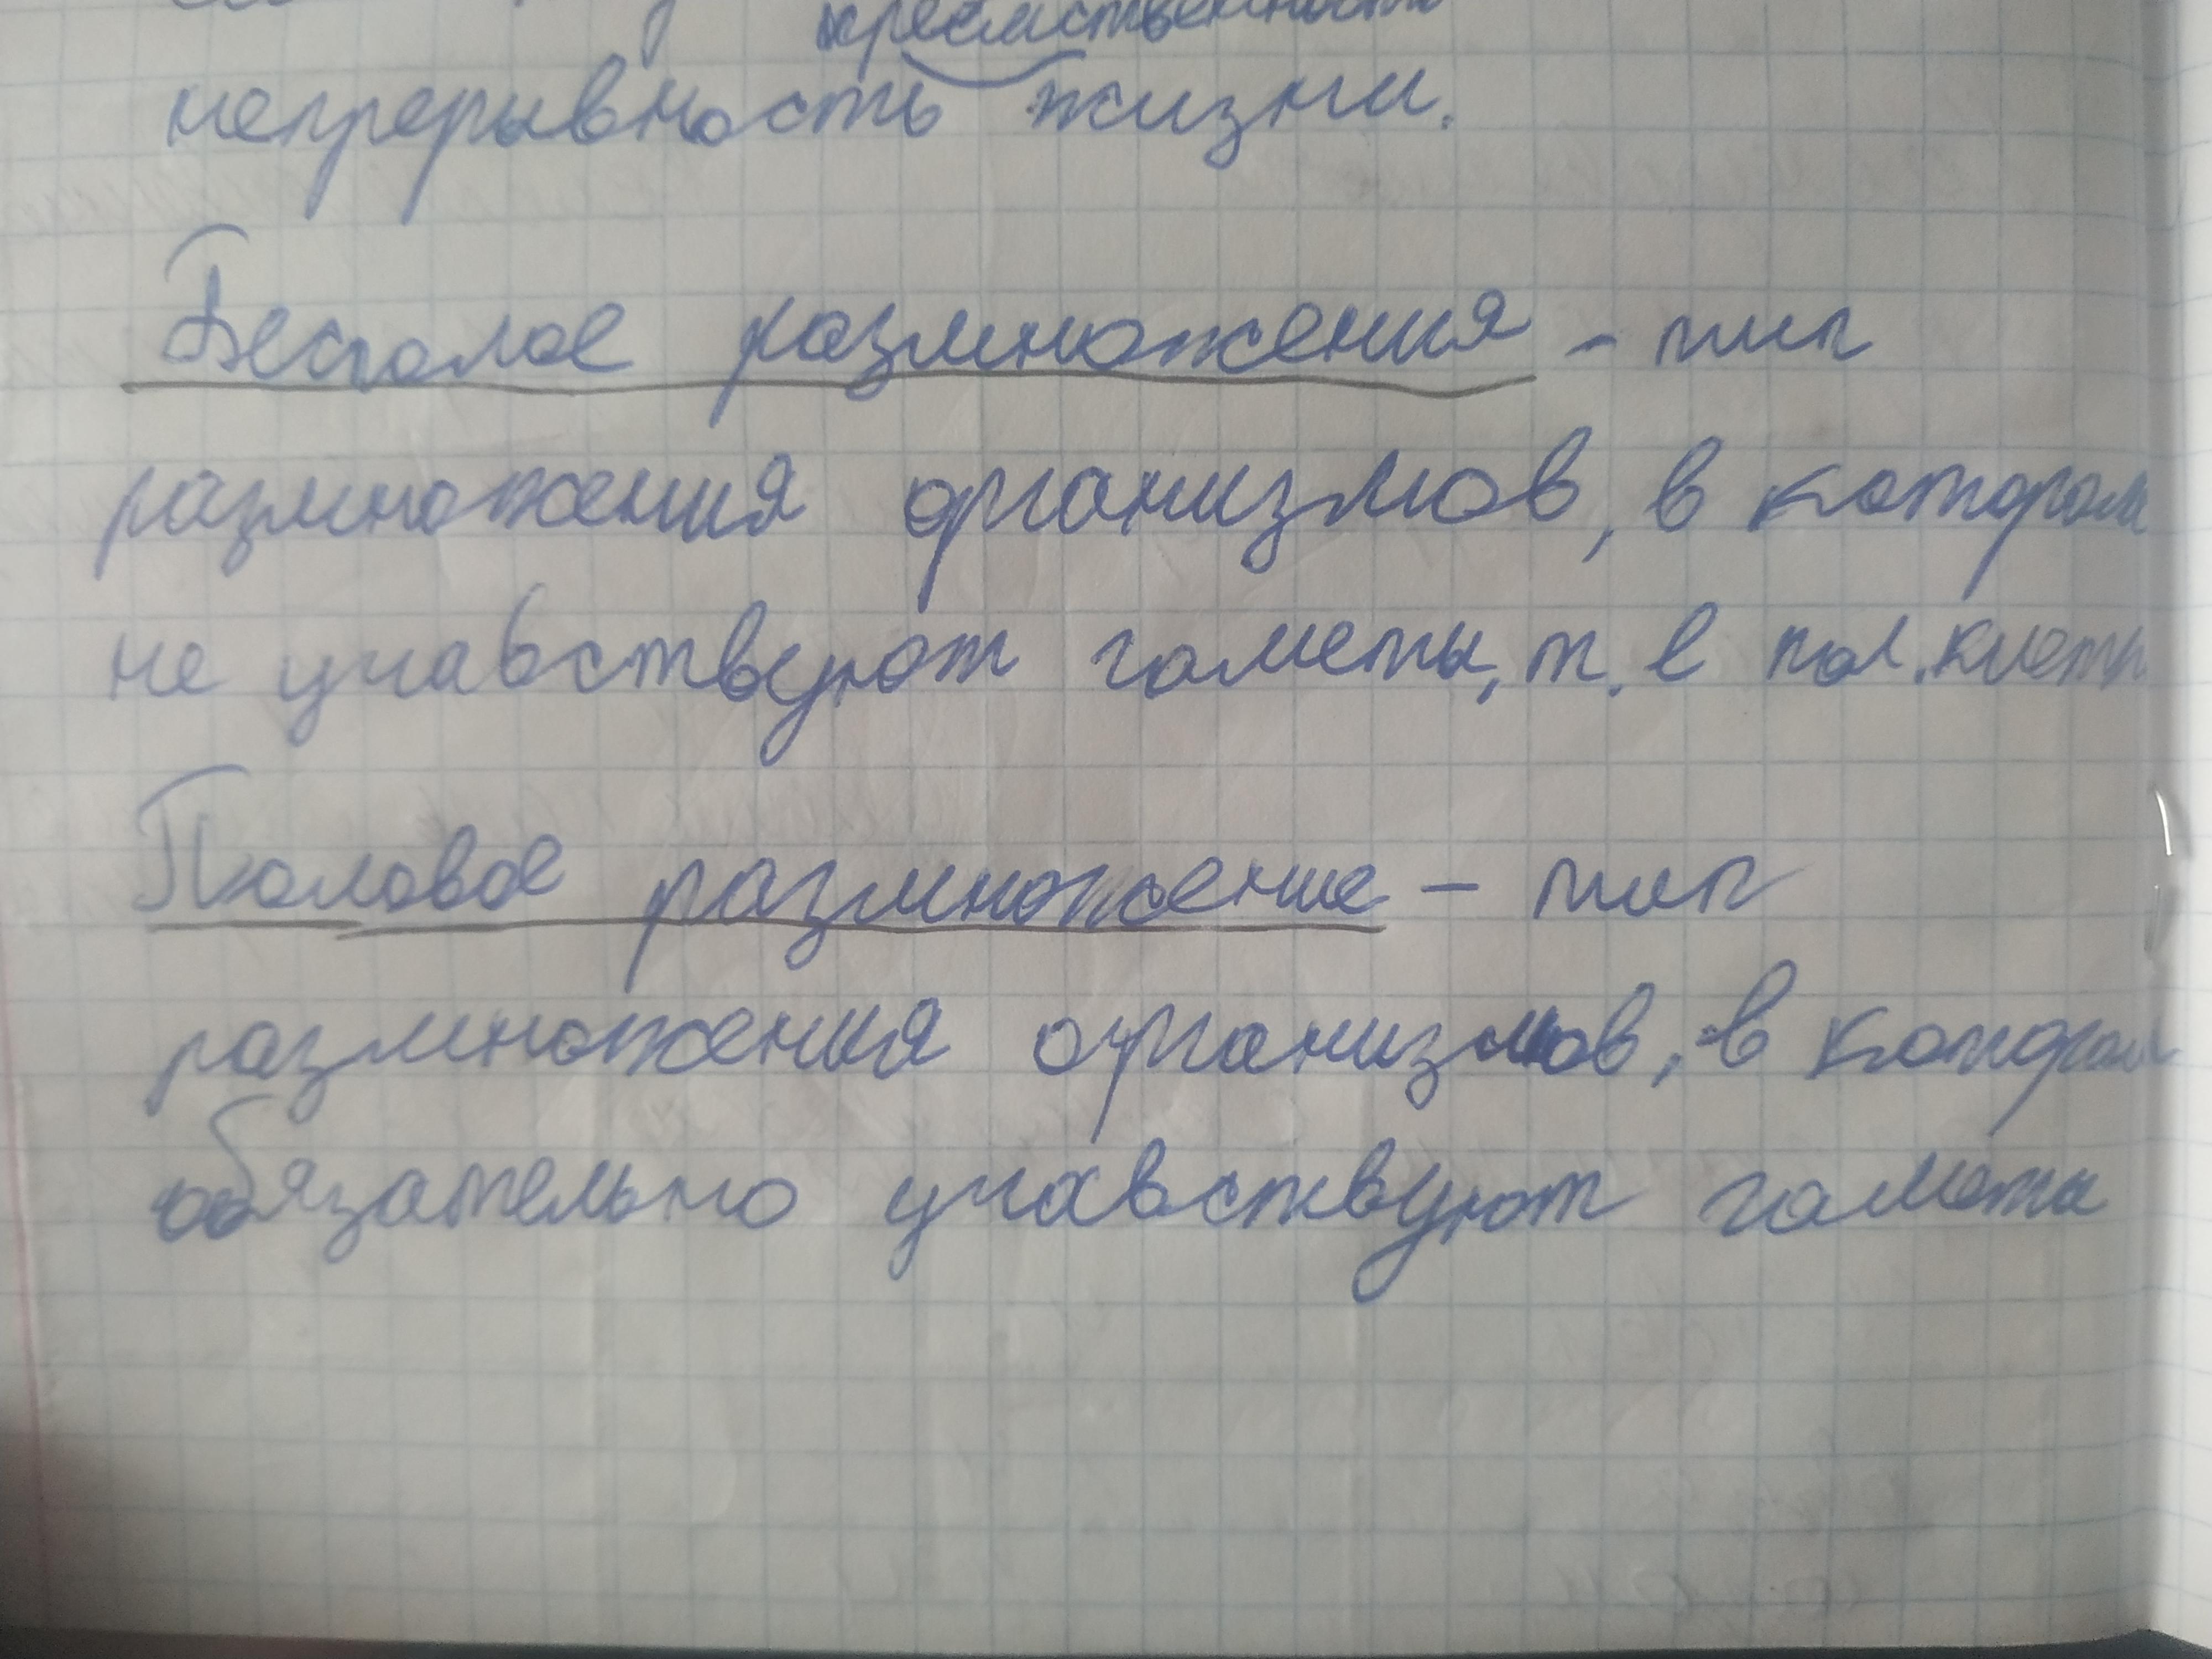 преемственность
непрерывность жизни.
Бесполое размножения - тип
размножения организмов, в котором
не учавствуют гаметы, т. е пол. клетк
Половое размножение - тип
размножения организмов, в котором
обязательно учавствуют гаметы